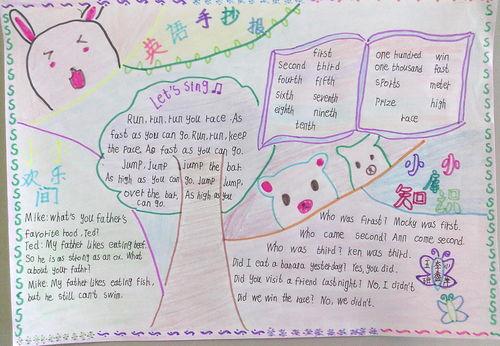 英語手抄报
Let's sing
Run, run, run you race. As
fast as you can go. Run, run, keep
the race. As fast as you can go.
Jump, Jump jump the bar.
As high as you can go. Jump Jump,
over the bar. As high as you
can go.
first
second third
fourth fifth
sixth seventh
eighth nineth
tenth
one hundred win
one thousand fast
sports meter
prize high
race
欢乐
间
Mike: what's you father's
favorite food, Ted?
Ted: My father likes eating beef.
So he is as strong as an ox. What
about your fathr?
Mike: My father likes eating fish,
but he still can't swim.
小小
知识
Who was firast? Mocky was first.
Who came second? Ann come second.
Who was third? ken was third.
Did I eat a banara yesterday? Yes, you did.
Did you visit a friend lastnight? No, I didn't
Did we win the race? No, we didn't.